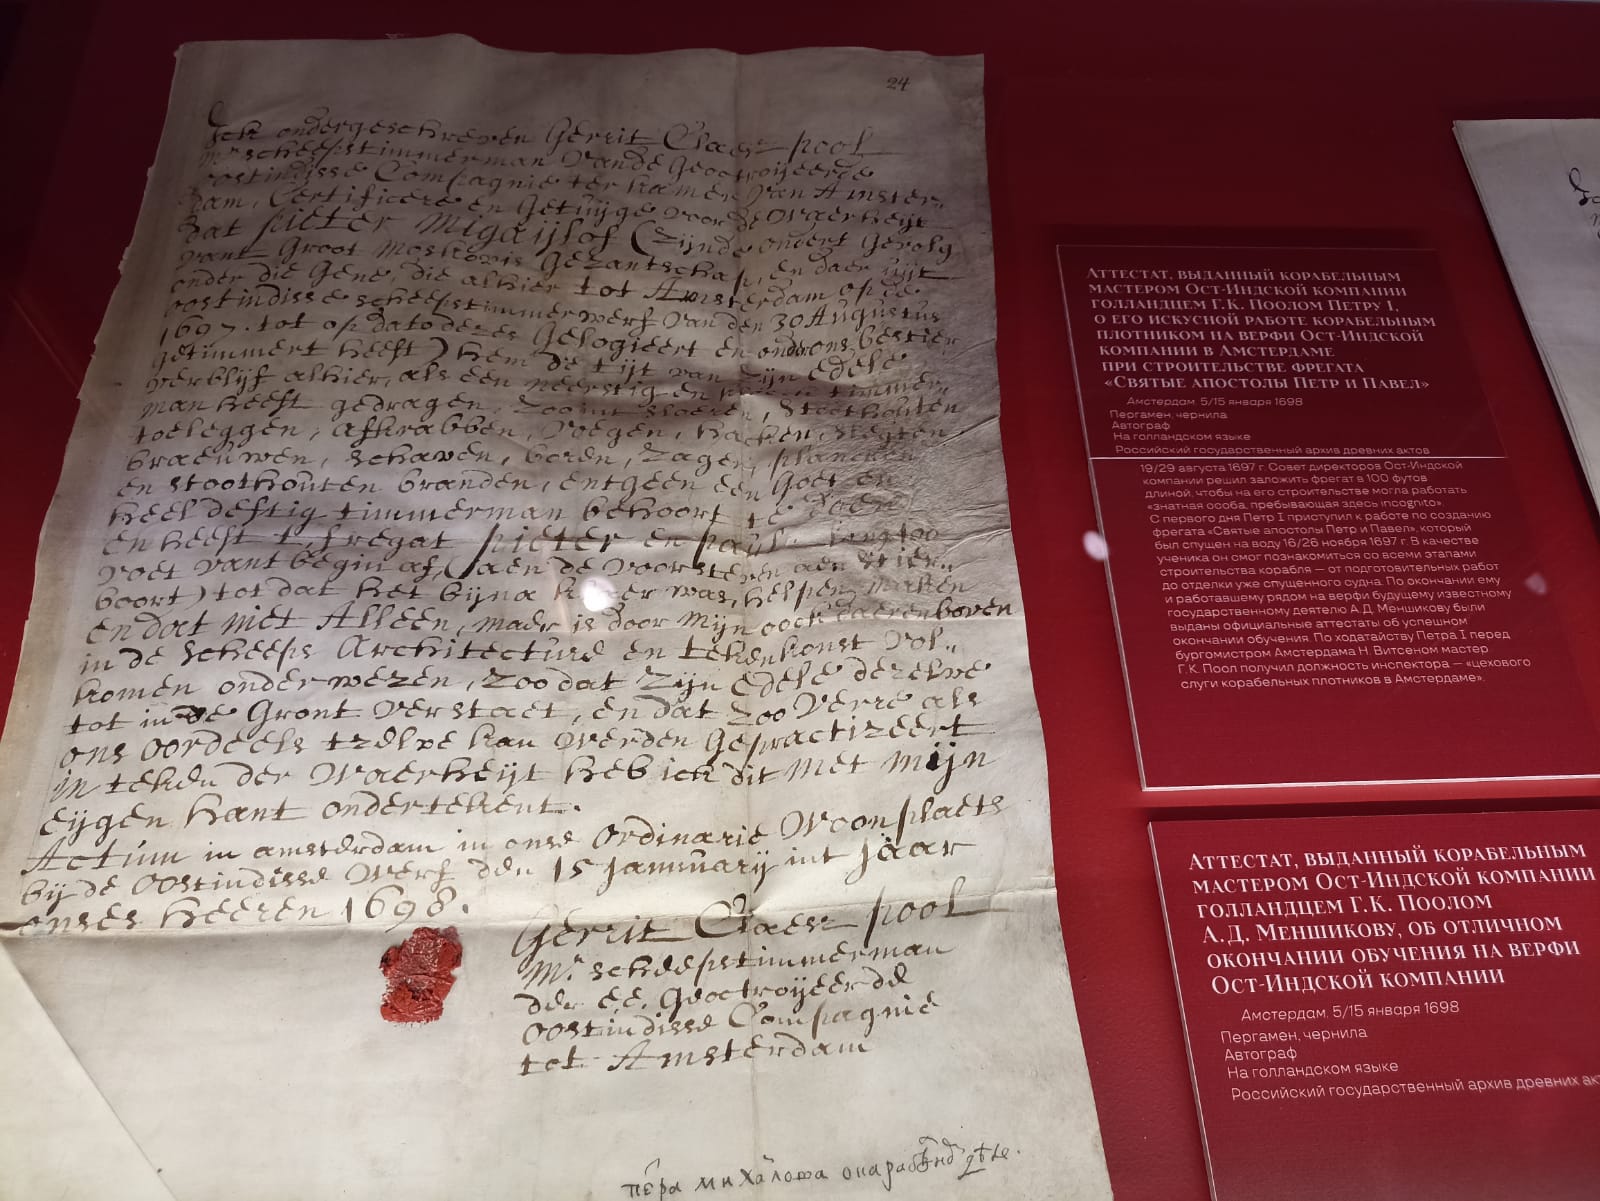 24
Ick ondergeschreven Gerrit Claesz pool
Mr scheepstimmerman vande Geoctroijeerde
oostindisse Compagnie ter kamer van Amster„
dam, Certificere en Getuijge voor de Waerheijt
dat pieter Migaijlof (zijnde ondert gevolg
vant Groot Moskovis Gezantschap, en daer uijt
onder die Gene, die alhier tot Amsterdam op de
oostindisse scheepstimmerwerf van den 30 Augustus
1697. tot op dato dezes Gelogieert en onder ons bestier
getimmert heeft) hem de tijt van zijn Edele
verblijf alhier, als een neerstig en timmer„
man heeft gedragen, Stoothouten
toeleggen, afkrabben, voegen,
braeuwen, schaven, boren, Zagen, plancken
en stoothouten branden, entgeen een Goet en
heel deftig timmerman behoort te doen
en heeft t, fregat pieter en pau
voet vant begin af, (aen de voorsteven aen stier„
boort) tot dat het bijna was, helpen maken
en dat niet Alleen, maer is door mijn oock daerenboven
in de scheeps Architecture en tekenkonst vol„
komen onderwezen, Zoo dat Zijn Edele dezelve
tot in de Gront verstaet, en dat zoo verre als
ons oordeels tzelve kan werden Gepractizeert
in teken der Waerheijt heb ick dit met mijn
eijgen hant ondertekent.
Actum in amsterdam in onse Ordinarie Woonplaets
bij de Oostindisse Werf den 15 Januarij int jaar
onses Heeren 1698.
Gerrit Claesz pool
Mr. scheepstimmerman
der ee, Geoctroijeerde
oostindisse Compagnie
tot Amsterdam
михалова
Аттестат, выданный корабельным
мастером Ост-Индской компании
голландцем Г.К. Поолом Петру I,
о его искусной работе корабельным
плотником на верфи Ост-Индской
компании в Амстердаме
при строительстве фрегата
«Святые апостолы Петр и Павел»
Амстердам. 5/15 января 1698
Пергамен, чернила
Автограф
На голландском языке
Российский государственный архив древних актов
19/29 августа 1697 г. Совет директоров Ост-Индской
компании решил заложить фрегат в 100 футов
длиной, чтобы на его строительстве могла работать
«знатная особа, пребывающая здесь incognito».
С первого дня Петр I приступил к работе по созданию
фрегата «Святые апостолы Петр и Павел», который
был спущен на воду 16/26 ноября 1697 г. В качестве
ученика он смог познакомиться со всеми этапами
строительства корабля — от подготовительных работ
до отделки уже спущенного судна. По окончании ему
и работавшему рядом на верфи будущему известному
государственному деятелю А.Д. Меншикову были
выданы официальные аттестаты об успешном
окончании обучения. По ходатайству Петра I перед
бургомистром Амстердама Н. Витсеном мастер
Г.К. Поол получил должность инспектора — «цехового
слуги корабельных плотников в Амстердаме».
Аттестат, выданный корабельным
мастером Ост-Индской компании
голландцем Г.К. Поолом
А.Д. Меншикову, об отличном
окончании обучения на верфи
Ост-Индской компании
Амстердам. 5/15 января 1698
Пергамен, чернила
Автограф
На голландском языке
Российский государственный архив древних